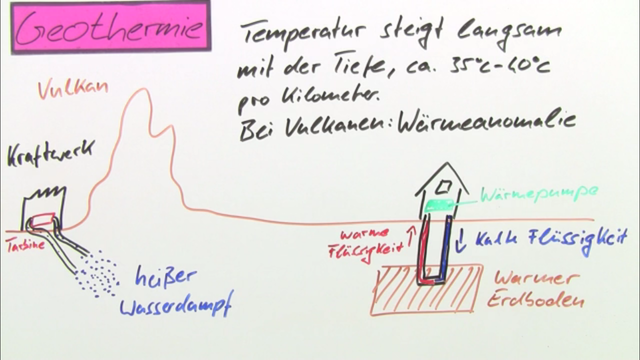 Geothermie
Temperatur steigt langsam
mit der Tiefe, ca. 35°C-40°C
pro Kilometer.
Bei Vulkanen: Wärmeanomalie
Vulkan
Kraftwerk
Turbine
heißer
Wasserdampf
Wärmepumpe
warme
Flüssigkeit
kalte Flüssigkeit
Warmer
Erdboden